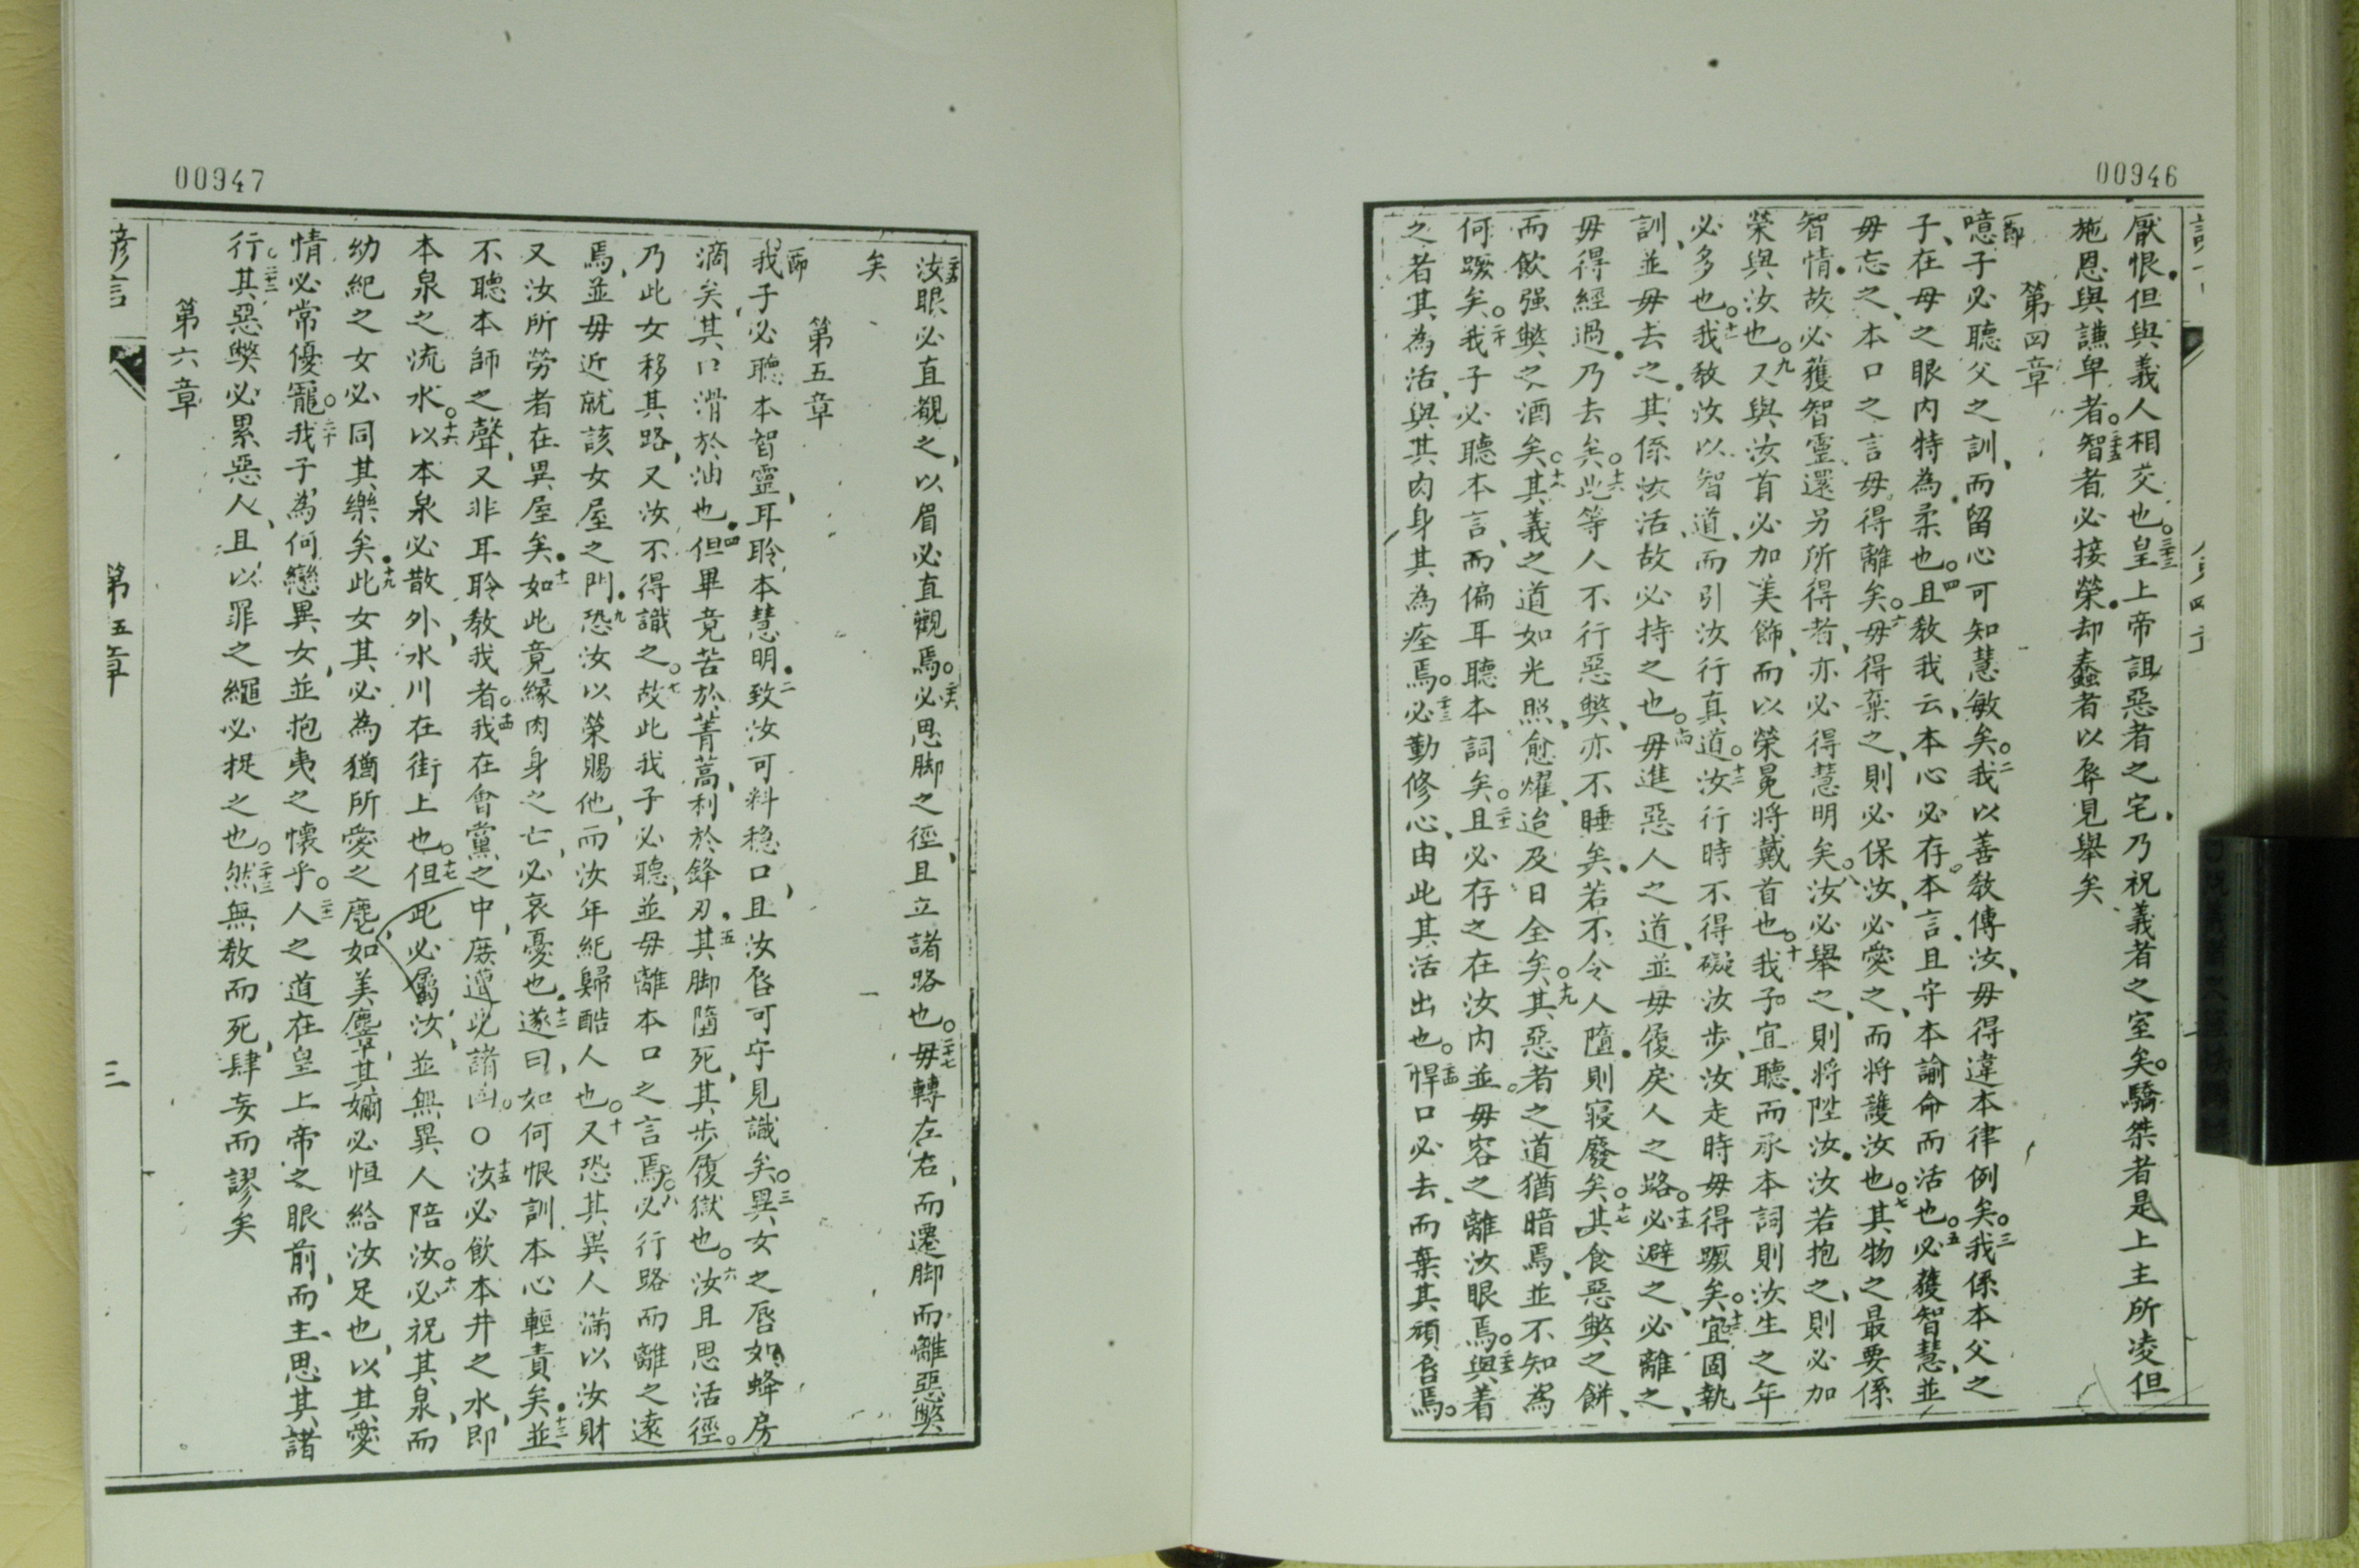 00946
厭恨但與義人相交也。三十三皇上帝詛惡者之宅、乃祝義者之室矣。驕桀者是上主所凌但
施恩與謙卑者。三十五智者必接榮却蠢者以辱見舉矣
第四章
一節噫子必聽父之訓、而留心可知慧敏矣。二我以善敎傳汝、毋得違本律例矣。三我係本父之
子、在母之眼内特為柔也。四且敎我云、本心必存本言、且守本諭命而活也。五必獲智慧、並
毋忘之、本口之言毋得離矣。六毋得棄之、則必保汝、必愛之、而將護汝也。七其物之最要係
智情。故必獲智靈還另所得者、亦必得慧明矣。八汝必舉之、則將陞汝。汝若抱之、則必加
榮與汝也。九又與汝首必加美飾、而以榮冕將戴首也。十我子宜聽、而承本詞則汝生之年
必多也。十一我敎汝以智道、而引汝行真道。十二汝行時不得礙汝步、汝走時毋得蹶矣。十三宜固執
訓、並毋去之。其係汝活故必持之也。十四毋進惡人之道、並毋履戾人之路。十五必避之、必離之、
毋得經過。乃去矣。十六此等人不行惡獘、亦不睡矣。若不令人墮。則寢廢矣。十七其食惡獘之餅、
而飲强獘之酒矣。十八其義之道如光照、愈燿、迨及日全矣。十九其惡者之道猶暗焉、並不知為
何蹶矣。二十我子必聽本言、而偏耳聽本詞矣。二十一且必存之在汝内並毋容之離汝眼焉。二十二與着
之者其為活、與其肉身其為痊焉。二十三必勤修心、由此其活出也。二十四悍口必去、而棄其頑唇焉。
00947
二十五汝眼必直覩之、以眉必直觀焉。二十六必思脚之徑、且立諸路也。二十七毋轉左右、而遷脚而離惡獘
矣
第五章
一節我子、必聽本智靈、耳聆本慧明。二致汝可料穏口、且汝唇可守見識矣。三異女之唇如蜂房
滴矣、其口滑於油也。四但畢竟苦於菁蒿、利於鋒刃。五其脚墮死、其步履獄也。六汝且思活徑。
乃此女移其路、又汝不得識之。七故此我子必聽、並毋離本口之言焉。八必行路而離之遠
焉、並毋近就該女屋之門。九恐汝以榮賜他、而汝年紀歸酷人也。十又恐其異人滿以汝財
又汝所勞者在異屋矣。十一如此竟縁肉身之亡、必哀憂也。十二遂曰、如何恨訓、本心輕責矣。十三並
不聽本師之聲、又非耳聆敎我者。十四我在會黨之中、庶遭此諸凶。○十五汝必飲本井之水、即
本泉之流水。十六以本泉必散外、水川在街上也。十七但此必屬汝、並無異人陪汝。十八必祝其泉、而
幼紀之女必同其樂矣。十九此女其必為猶所愛之麀如美麞、其嬭必恒給汝足也、以其愛
情必常優寵。二十我子為何戀異女、並抱夷之懷乎。二十一人之道在皇上帝之眼前、而主思其諸
行。二十二其惡獘必累惡人、且以罪之繩必捉之也。二十三然無敎而死、肆妄而謬矣
第六章
諺言
第五章
三